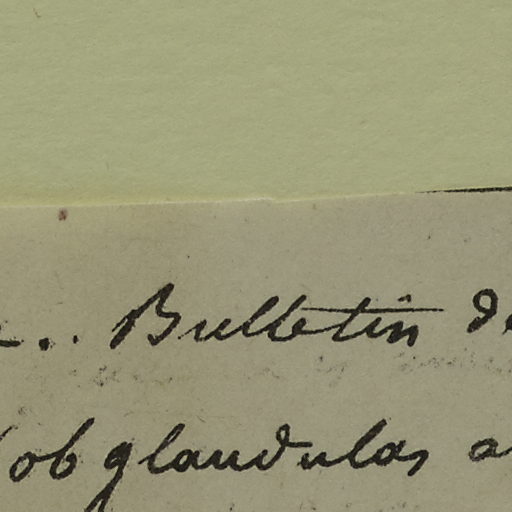 .. Bulletin d
ob glandulas a